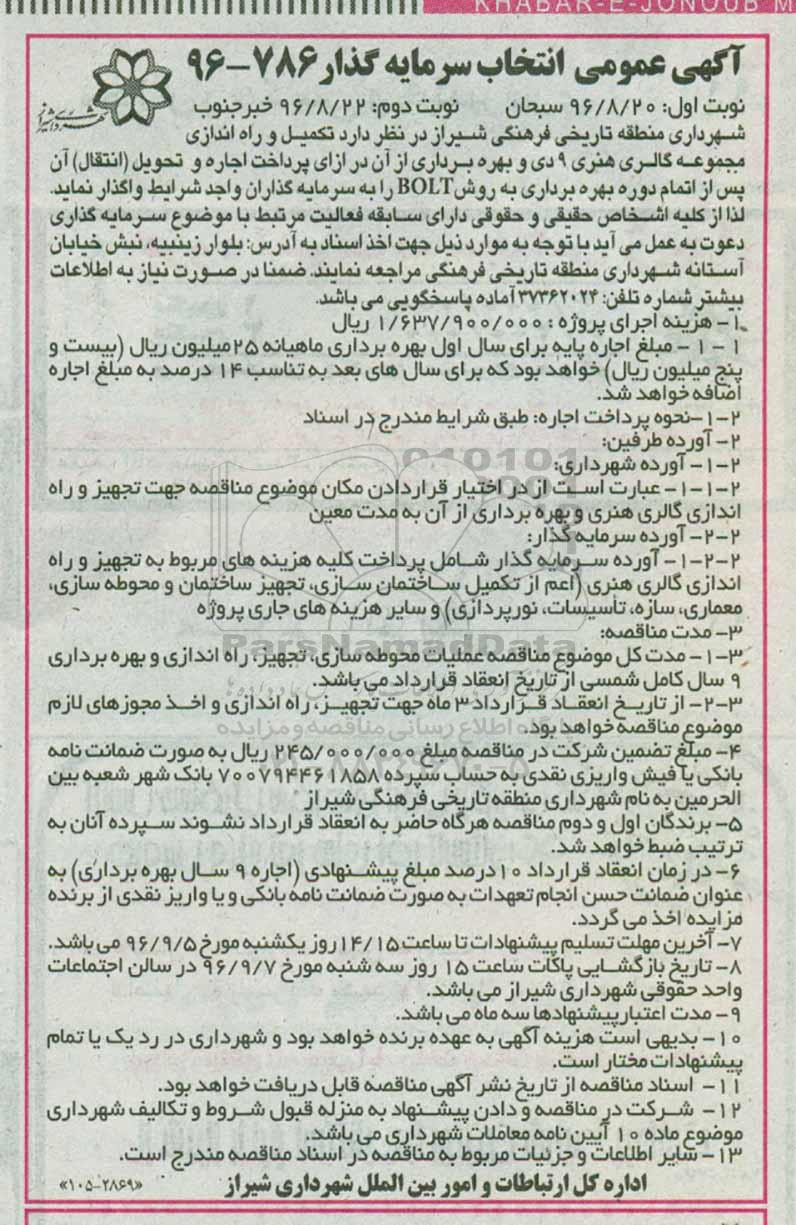 KHABAR-E-JONOUB M
آگهی عمومی انتخاب سرمایه گذار ۷۸۶-۹۶
نوبت اول: ۹۶/۸/۲۰ سبحان نوبت دوم: ۹۶/۸/۲۲ خبرجنوب
شهرداری منطقه تاریخی فرهنگی شیراز در نظر دارد تکمیل و راه اندازی
مجموعه گالری هنری ۹ دی و بهره برداری از آن در ازای پرداخت اجاره و تحویل (انتقال) آن
پس از اتمام دوره بهره برداری به روش BOLT را به سرمایه گذاران واجد شرایط واگذار نماید.
لذا از کلیه اشخاص حقیقی و حقوقی دارای سابقه فعالیت مرتبط با موضوع سرمایه گذاری
دعوت به عمل می آید با توجه به موارد ذیل جهت اخذ اسناد به آدرس: بلوار زینبیه، نبش خیابان
آستانه شهرداری منطقه تاریخی فرهنگی مراجعه نمایند. ضمنا در صورت نیاز به اطلاعات
بیشتر شماره تلفن: ۳۷۳۶۲۰۲۴ آماده پاسخگویی می باشد.
۱- هزینه اجرای پروژه : ۱/۶۳۷/۹۰۰/۰۰۰ ریال
۱ - ۱ - مبلغ اجاره پایه برای سال اول بهره برداری ماهیانه ۲۵میلیون ریال (بیست و
پنج میلیون ریال) خواهد بود که برای سال های بعد به تناسب ۱۴ درصد به مبلغ اجاره
اضافه خواهد شد.
۲-۱-نحوه پرداخت اجاره: طبق شرایط مندرج در اسناد
۲- آورده طرفین:
۲-۱- آورده شهرداری:
۲-۱-۱- عبارت است از در اختیار قراردادن مکان موضوع مناقصه جهت تجهیز و راه
اندازی گالری هنری و بهره برداری از آن به مدت معین
۲-۲- آورده سرمایه گذار:
۲-۲-۱- آورده سرمایه گذار شامل پرداخت کلیه هزینه های مربوط به تجهیز و راه
اندازی گالری هنری (اعم از تکمیل ساختمان سازی، تجهیز ساختمان و محوطه سازی،
معماری، سازه، تأسیسات، نورپردازی) و سایر هزینه های جاری پروژه
ParsNamadData
۳- مدت مناقصه:
۳-۱- مدت کل موضوع مناقصه عملیات محوطه سازی، تجهیز، راه اندازی و بهره برداری
۹ سال کامل شمسی از تاریخ انعقاد قرارداد می باشد.
۳-۲- از تاریخ انعقاد قرارداد ۳ ماه جهت تجهیز، راه اندازی و اخذ مجوزهای لازم
موضوع مناقصه خواهد بود.
پایگاه اطلاع رسانی مناقصه و مزایده
۴- مبلغ تضمین شرکت در مناقصه مبلغ ۲۴۵/۰۰۰/۰۰۰ ریال به صورت ضمانت نامه
بانکی یا فیش واریزی نقدی به حساب سپرده ۷۰۰۷۹۴۴۶۱۸۵۸ بانک شهر شعبه بین
الحرمین به نام شهرداری منطقه تاریخی فرهنگی شیراز
۵- برندگان اول و دوم مناقصه هرگاه حاضر به انعقاد قرارداد نشوند سپرده آنان به
ترتیب ضبط خواهد شد.
۶- در زمان انعقاد قرارداد ۱۰درصد مبلغ پیشنهادی (اجاره ۹ سال بهره برداری) به
عنوان ضمانت حسن انجام تعهدات به صورت ضمانت نامه بانکی و یا واریز نقدی از برنده
مزایده اخذ می گردد.
۷- آخرین مهلت تسلیم پیشنهادات تا ساعت ۱۴/۱۵ روز یکشنبه مورخ ۹۶/۹/۵ می باشد.
۸- تاریخ بازگشایی پاکات ساعت ۱۵ روز سه شنبه مورخ ۹۶/۹/۷ در سالن اجتماعات
واحد حقوقی شهرداری شیراز می باشد.
۹- مدت اعتبار پیشنهادها سه ماه می باشد.
۱۰- بدیهی است هزینه آگهی به عهده برنده خواهد بود و شهرداری در رد یک یا تمام
پیشنهادات مختار است.
۱۱- اسناد مناقصه از تاریخ نشر آگهی مناقصه قابل دریافت خواهد بود.
۱۲- شرکت در مناقصه و دادن پیشنهاد به منزله قبول شروط و تکالیف شهرداری
موضوع ماده ۱۰ آیین نامه معاملات شهرداری می باشد.
۱۳- سایر اطلاعات و جزئیات مربوط به مناقصه در اسناد مناقصه مندرج است.
اداره کل ارتباطات و امور بین الملل شهرداری شیراز «۱۰۵-۲۸۶۹»